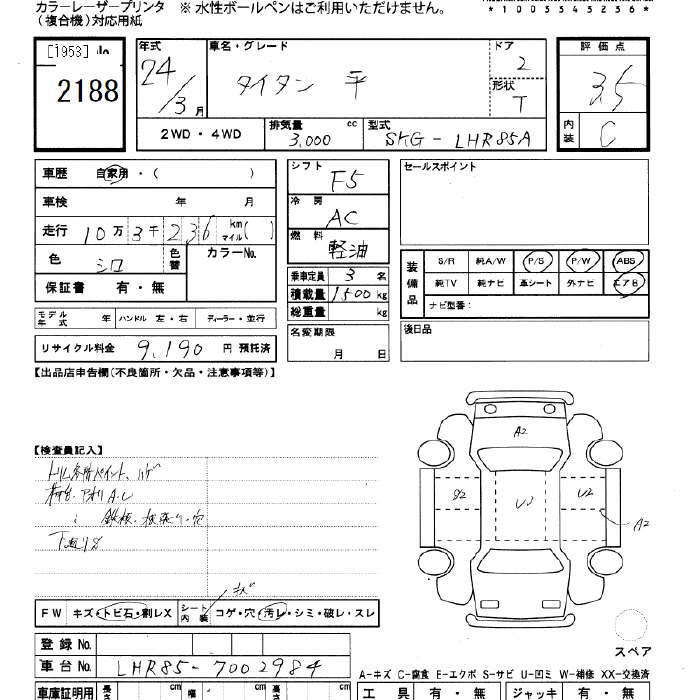 カラーレーザープリンタ ※ 水性ボールペンはご利用いただけません。
(複合機)対応用紙
*1003543236*
[1953]
2188
年式
24/3月
車名・グレード
タイタン 平
ドア
2
形状
T
2WD・4WD
排気量
3,000 cc
型式
SKG-LHR85A
評価点
3.5
内装
C
車歴 自家用・( )
車検 年 月
走行 10万3千236 kmマイル( )
色 シロ 色替 カラーNo.
保証書 有・無
シフト
F5
冷房
AC
燃料
軽油
乗車定員 3名
積載量 1500kg
総重量 kg
セールスポイント
装備品
S/R 純A/W P/S P/W ABS
純TV 純ナビ 革シート 外ナビ エアB
ナビ型番:
モデル年式 年 ハンドル 左・右 ディーラー・並行
名変期限
月 日
後日品
リサイクル料金 9,190円預託済
【出品店申告欄(不良箇所・欠品・注意事項等)】
【検査員記入】
A2
S2
U3
U2
A2
FW キズ・トビ石・割レX シート内装 コゲ・穴・汚レ・シミ・破レ・スレ
スペア
登録No.
車台No. LHR85-7002984
A-キズ C-腐食 E-エクボ S-サビ U-凹ミ W-補修 XX-交換済
車庫証明用 長さ cm 幅 cm 高さ cm
工具 有・無 ジャッキ 有・無